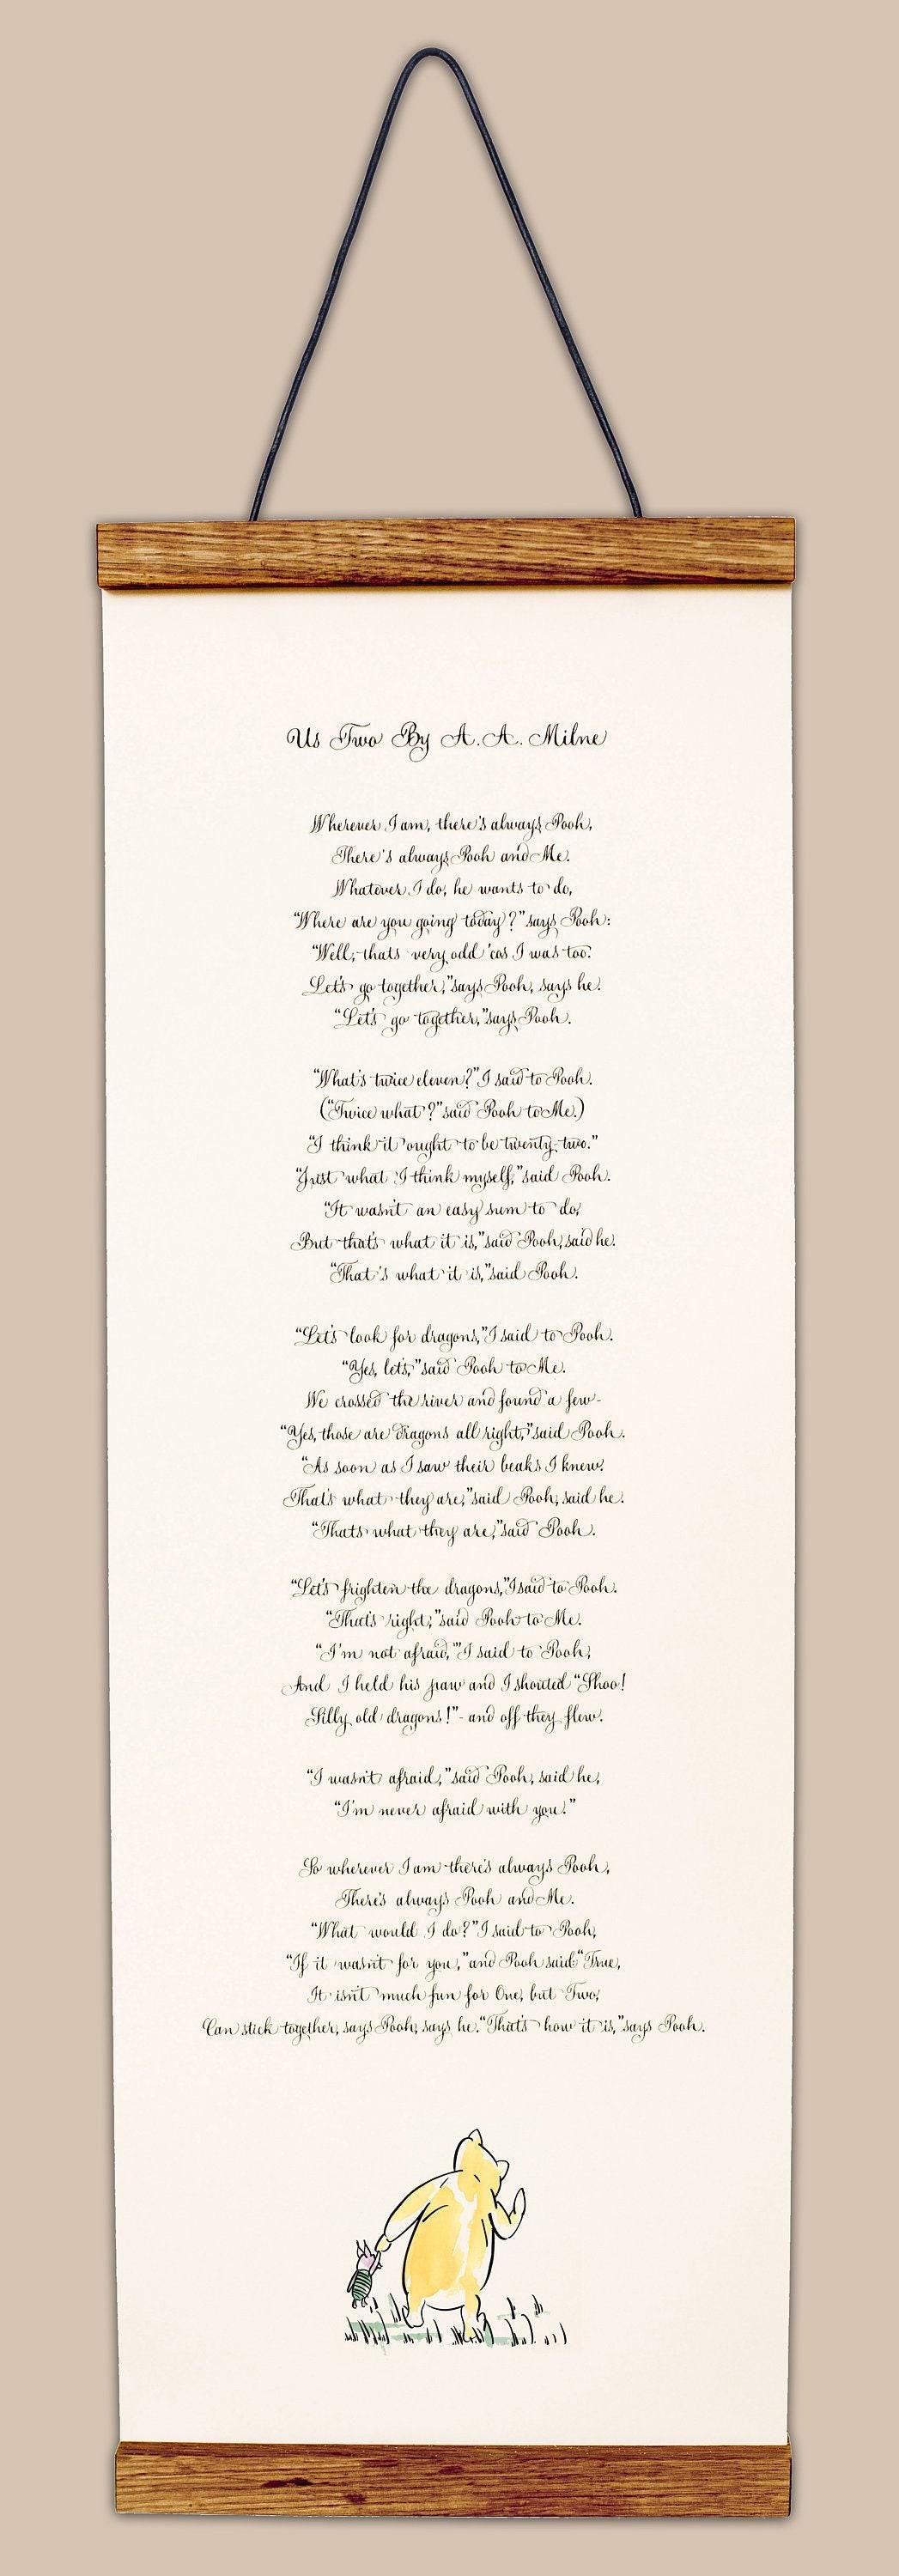 Us Two By A.A. Milne
Wherever I am, there's always Pooh,
There's always Pooh and Me.
Whatever I do, he wants to do,
"Where are you going today?" says Pooh:
"Well, thats very odd 'cos I was too.
Let's go together," says Pooh, says he.
"Let's go together," says Pooh.
"What's twice eleven?" I said to Pooh.
("Twice what?" said Pooh to Me.)
"I think it ought to be twenty-two."
"Just what I think myself," said Pooh.
"It wasn't an easy sum to do,
But that's what it is," said Pooh, said he.
"That's what it is," said Pooh.
"Let's look for dragons," I said to Pooh.
"Yes, let's," said Pooh to Me.
We crossed the river and found a few-
"Yes, those are dragons all right," said Pooh.
"As soon as I saw their beaks I knew.
That's what they are," said Pooh, said he.
"Thats what they are," said Pooh.
"Let's frighten the dragons," I said to Pooh.
"That's right," said Pooh to Me.
"I'm not afraid," I said to Pooh,
And I held his paw and I shouted "Shoo!
Silly old dragons!"- and off they flew.
"I wasn't afraid," said Pooh, said he,
"I'm never afraid with you."
So wherever I am there's always Pooh,
There's always Pooh and Me.
"What would I do?" I said to Pooh,
"If it wasn't for you," and Pooh said "True,
It isn't much fun for One, but Two,
Can stick together, says Pooh, says he. "That's how it is," says Pooh.